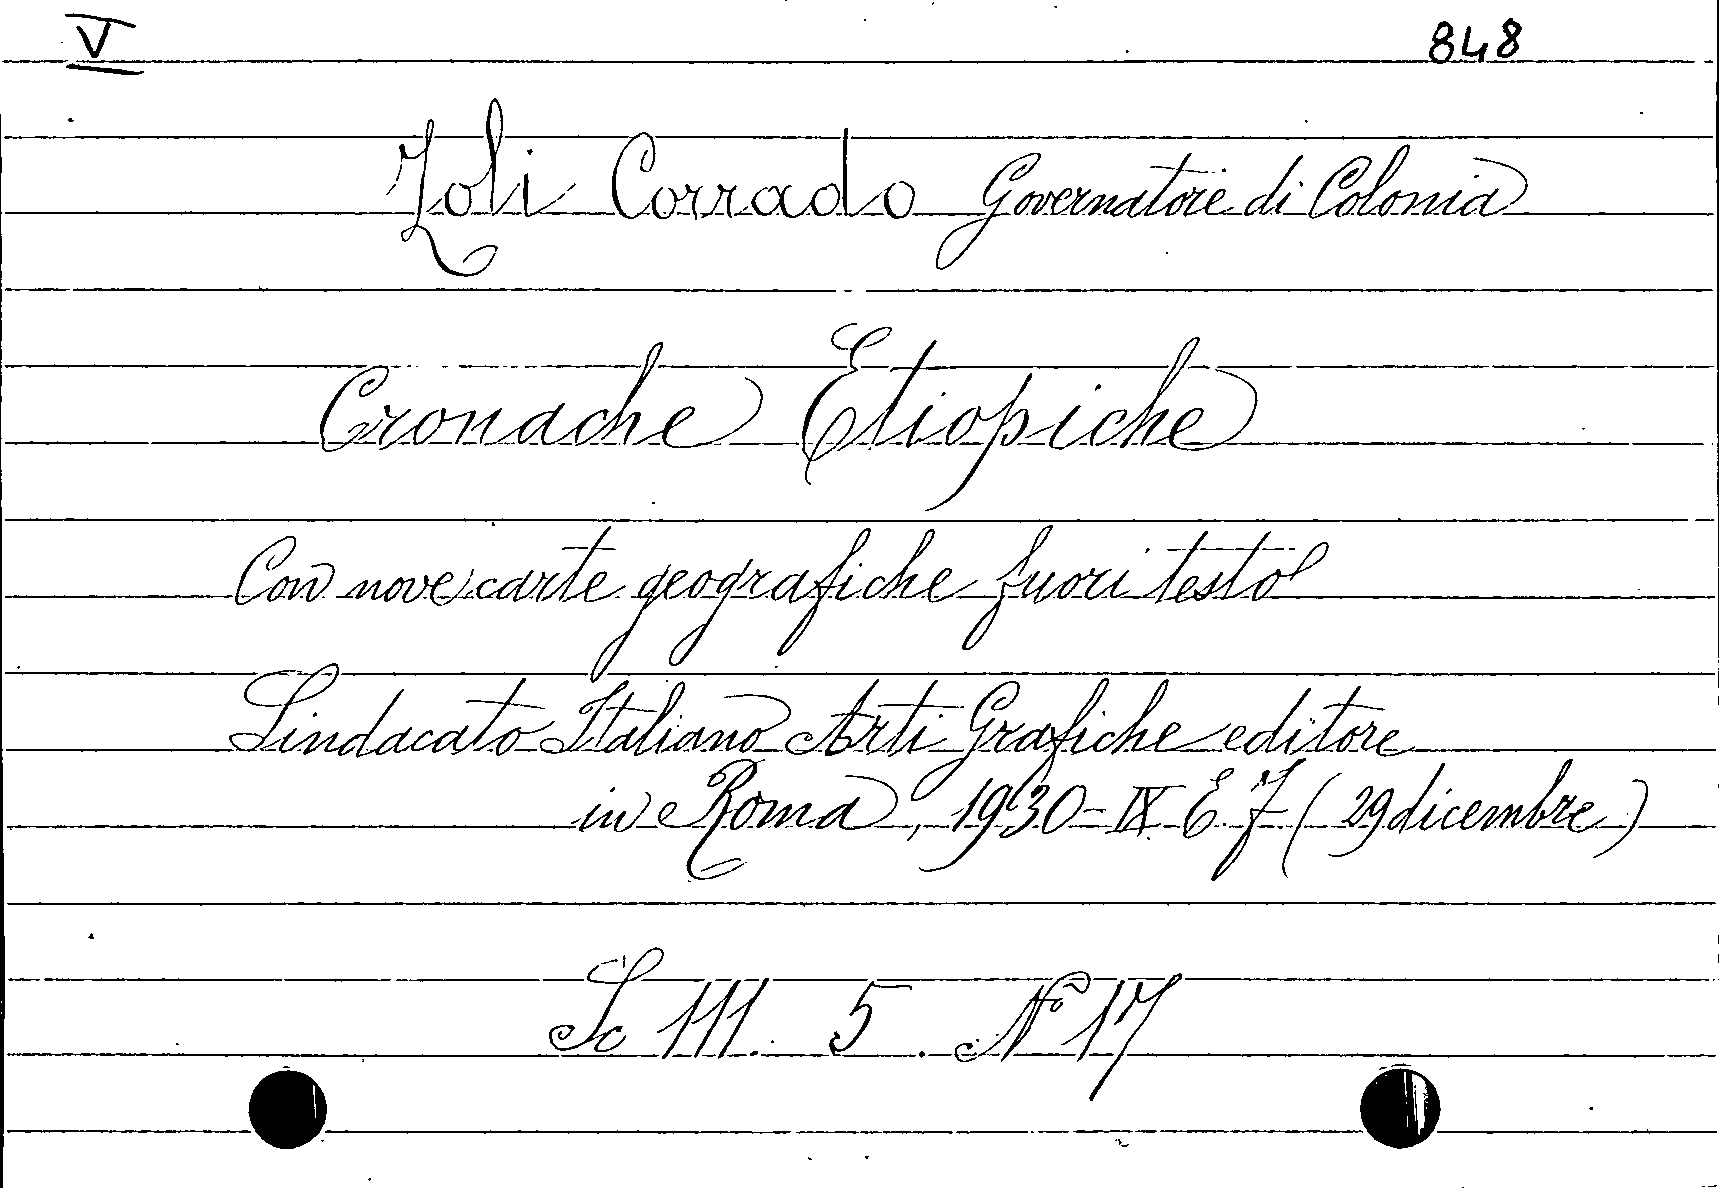 V 848
Zoli Corrado Governatore di Colonia
Cronache Etiopiche
Con nove carte geografiche fuori testo
Sindacato Italiano Arti Grafiche editore
in Roma, 1930-IX E F (29 dicembre)
Sc 111. 5. Nº 17